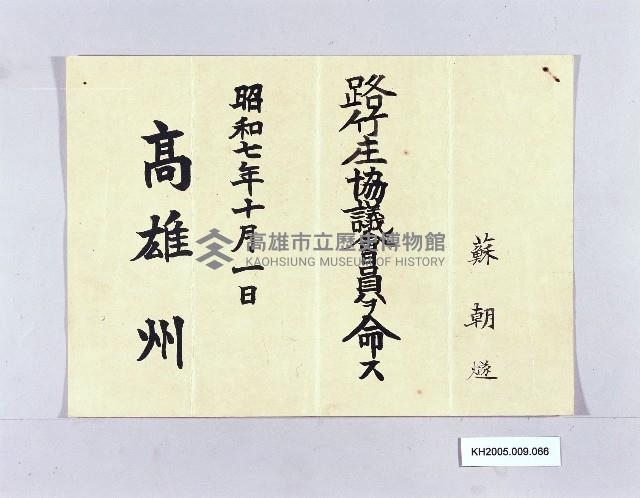 蘇朝燧
路竹庄協議會員ヲ命ス
昭和七年十月一日
高雄州
高雄市立歷史博物館
KAOHSIUNG MUSEUM OF HISTORY
KH2005.009.066